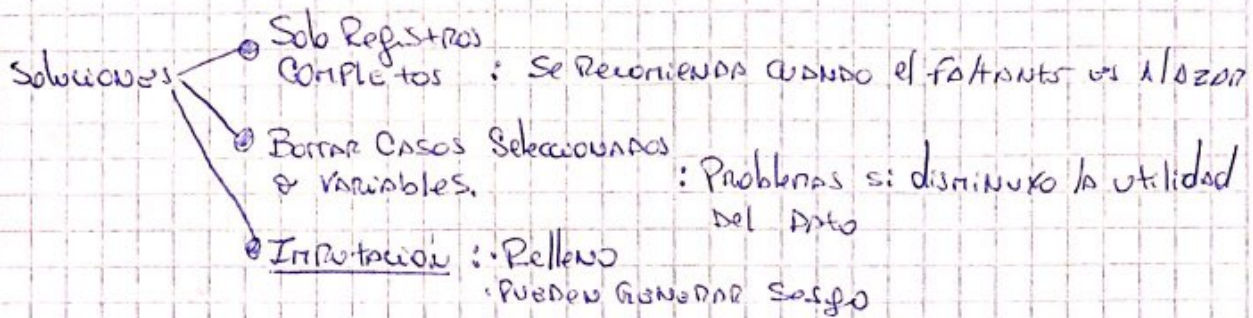 Soluciones
Solo Registros
Completos : Se recomienda cuando el faltante es al azar
Borrar casos seleccionados
o variables. : Problemas si disminuyo la utilidad
del dato
Imputación : · Relleno
· Pueden generar sesgo